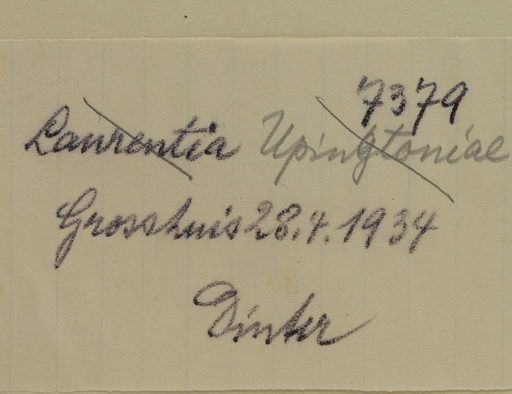 7379
Laurentia Upingtoniae
Grosshuis 28.4.1934
Dinter